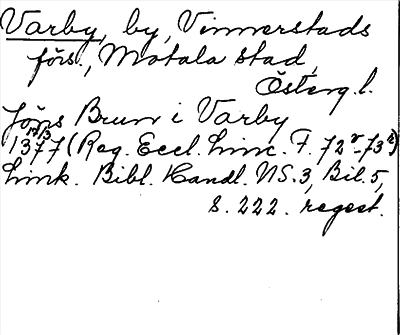 Varby, by, Vinnerstads
förs., Motala stad,
Österg. l.
Jöns Brun i Varby
1377 (Reg. Eccl. Linc. F. 72r-73r)
Link. Bibl. Handl. NS. 3, Bil. 5,
S. 222. regest.